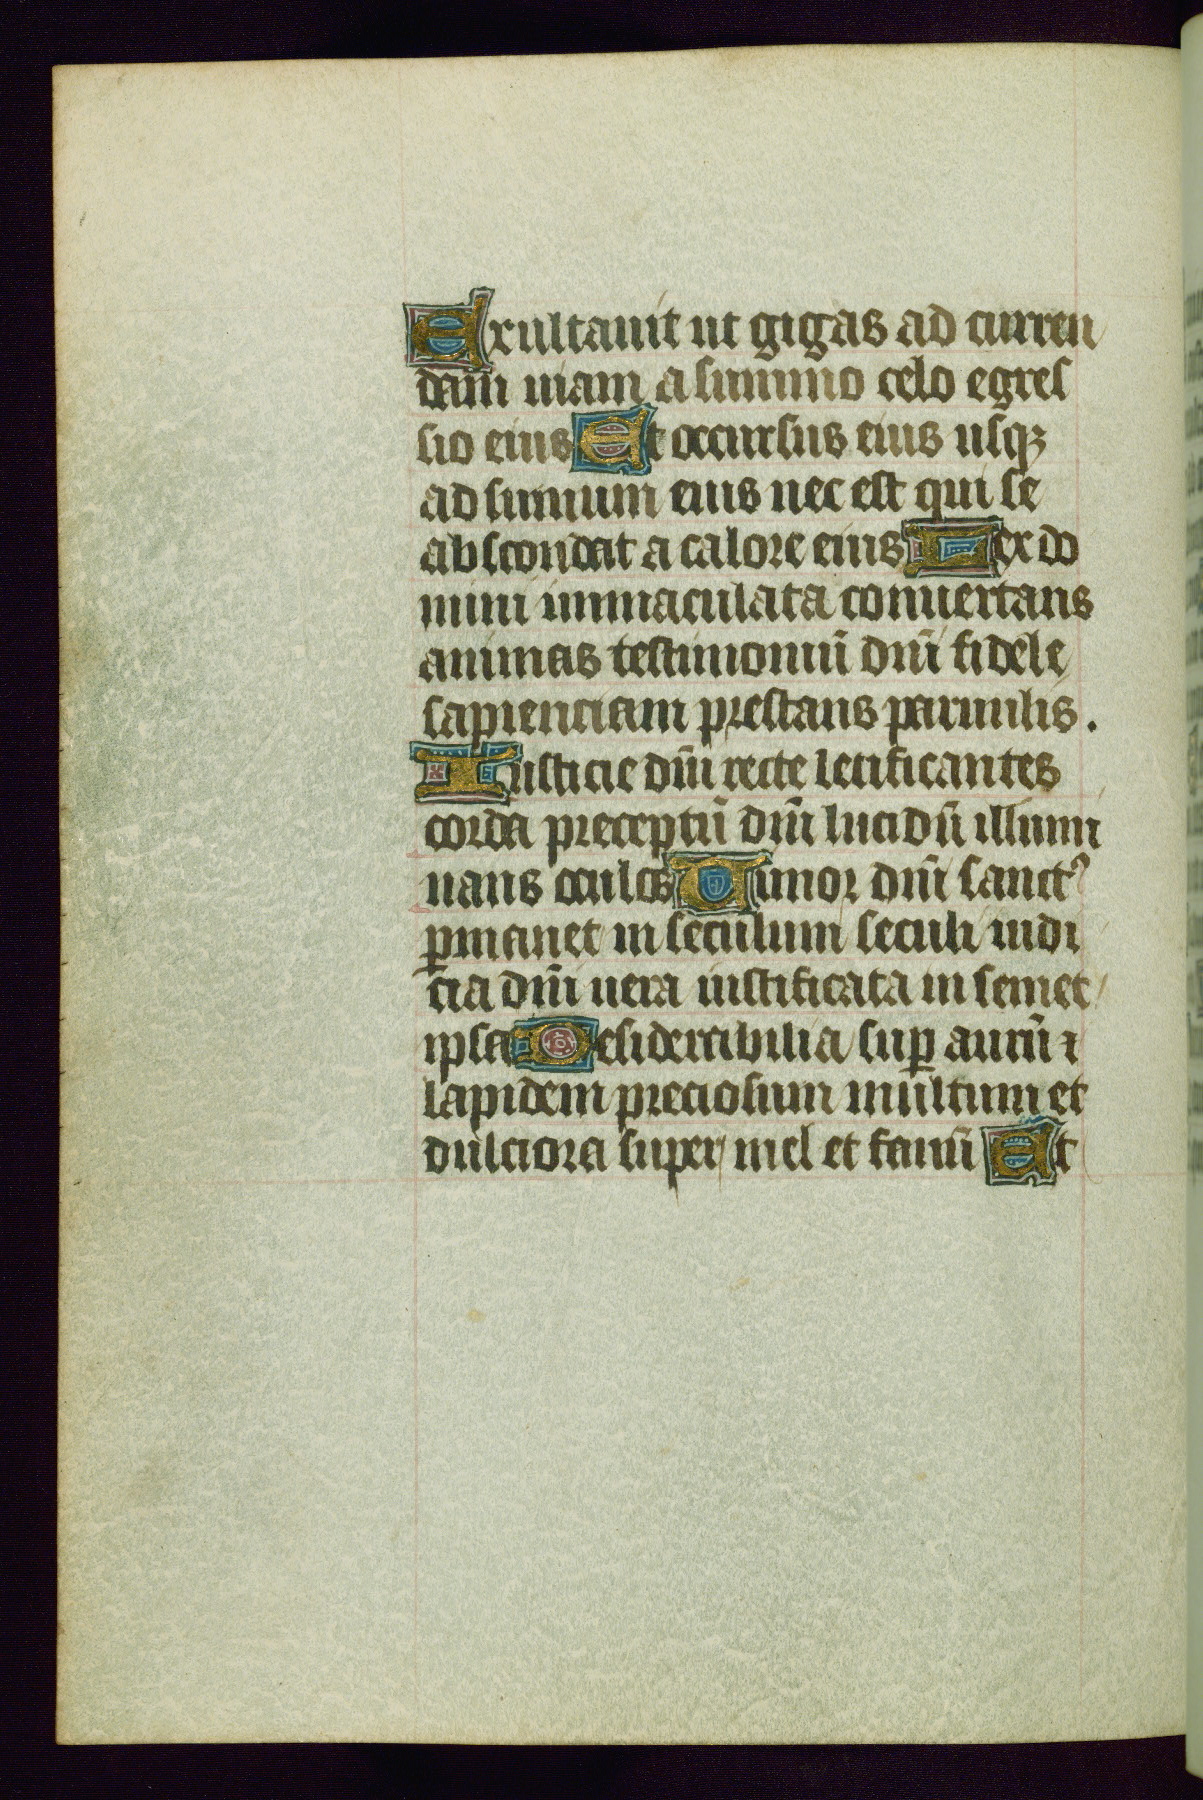 Exultauit ut gigas ad curren
dam uiam a summo celo egres
sio eius Et occursus eius usqꝫ
ad summum eius nec est qui se
abscondat a calore eius Lex do
mini immaculata conuertans
animas testimoniū dn̄i fidele
sapienciam prestans paruulis.
Iusticie dn̄i recte letificantes
corda preceptū dn̄i lucidū illumi
nans oculos Timor dn̄i sanctꝰ
ꝑmanet in seculum seculi iudi
cia dn̄i uera iustificata in semet
ipsa Desiderabilia suꝑ aurū ⁊
lapidem preciosum multum et
dulciora super mel et fauū Et